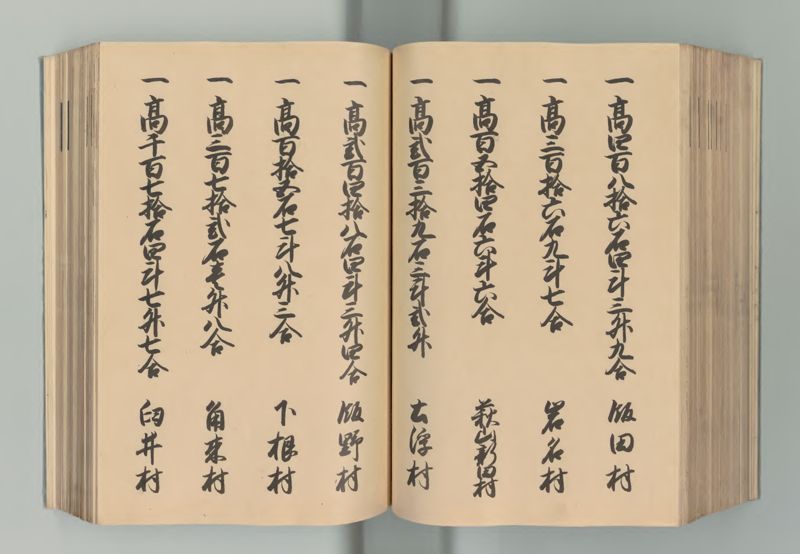 一高四百八拾六石四斗三升九合 飯田村
一高三百拾六石九斗七合 岩名村
一高百五拾四石六斗六合 萩山新田村
一高弐百三拾九石三斗弐升 土浮村
一高弐百四拾八石四斗三升四合 飯野村
一高百拾五石七斗八升三合 下根村
一高三百七拾弐石壱升八合 角来村
一高千百七拾石四斗七升七合 臼井村